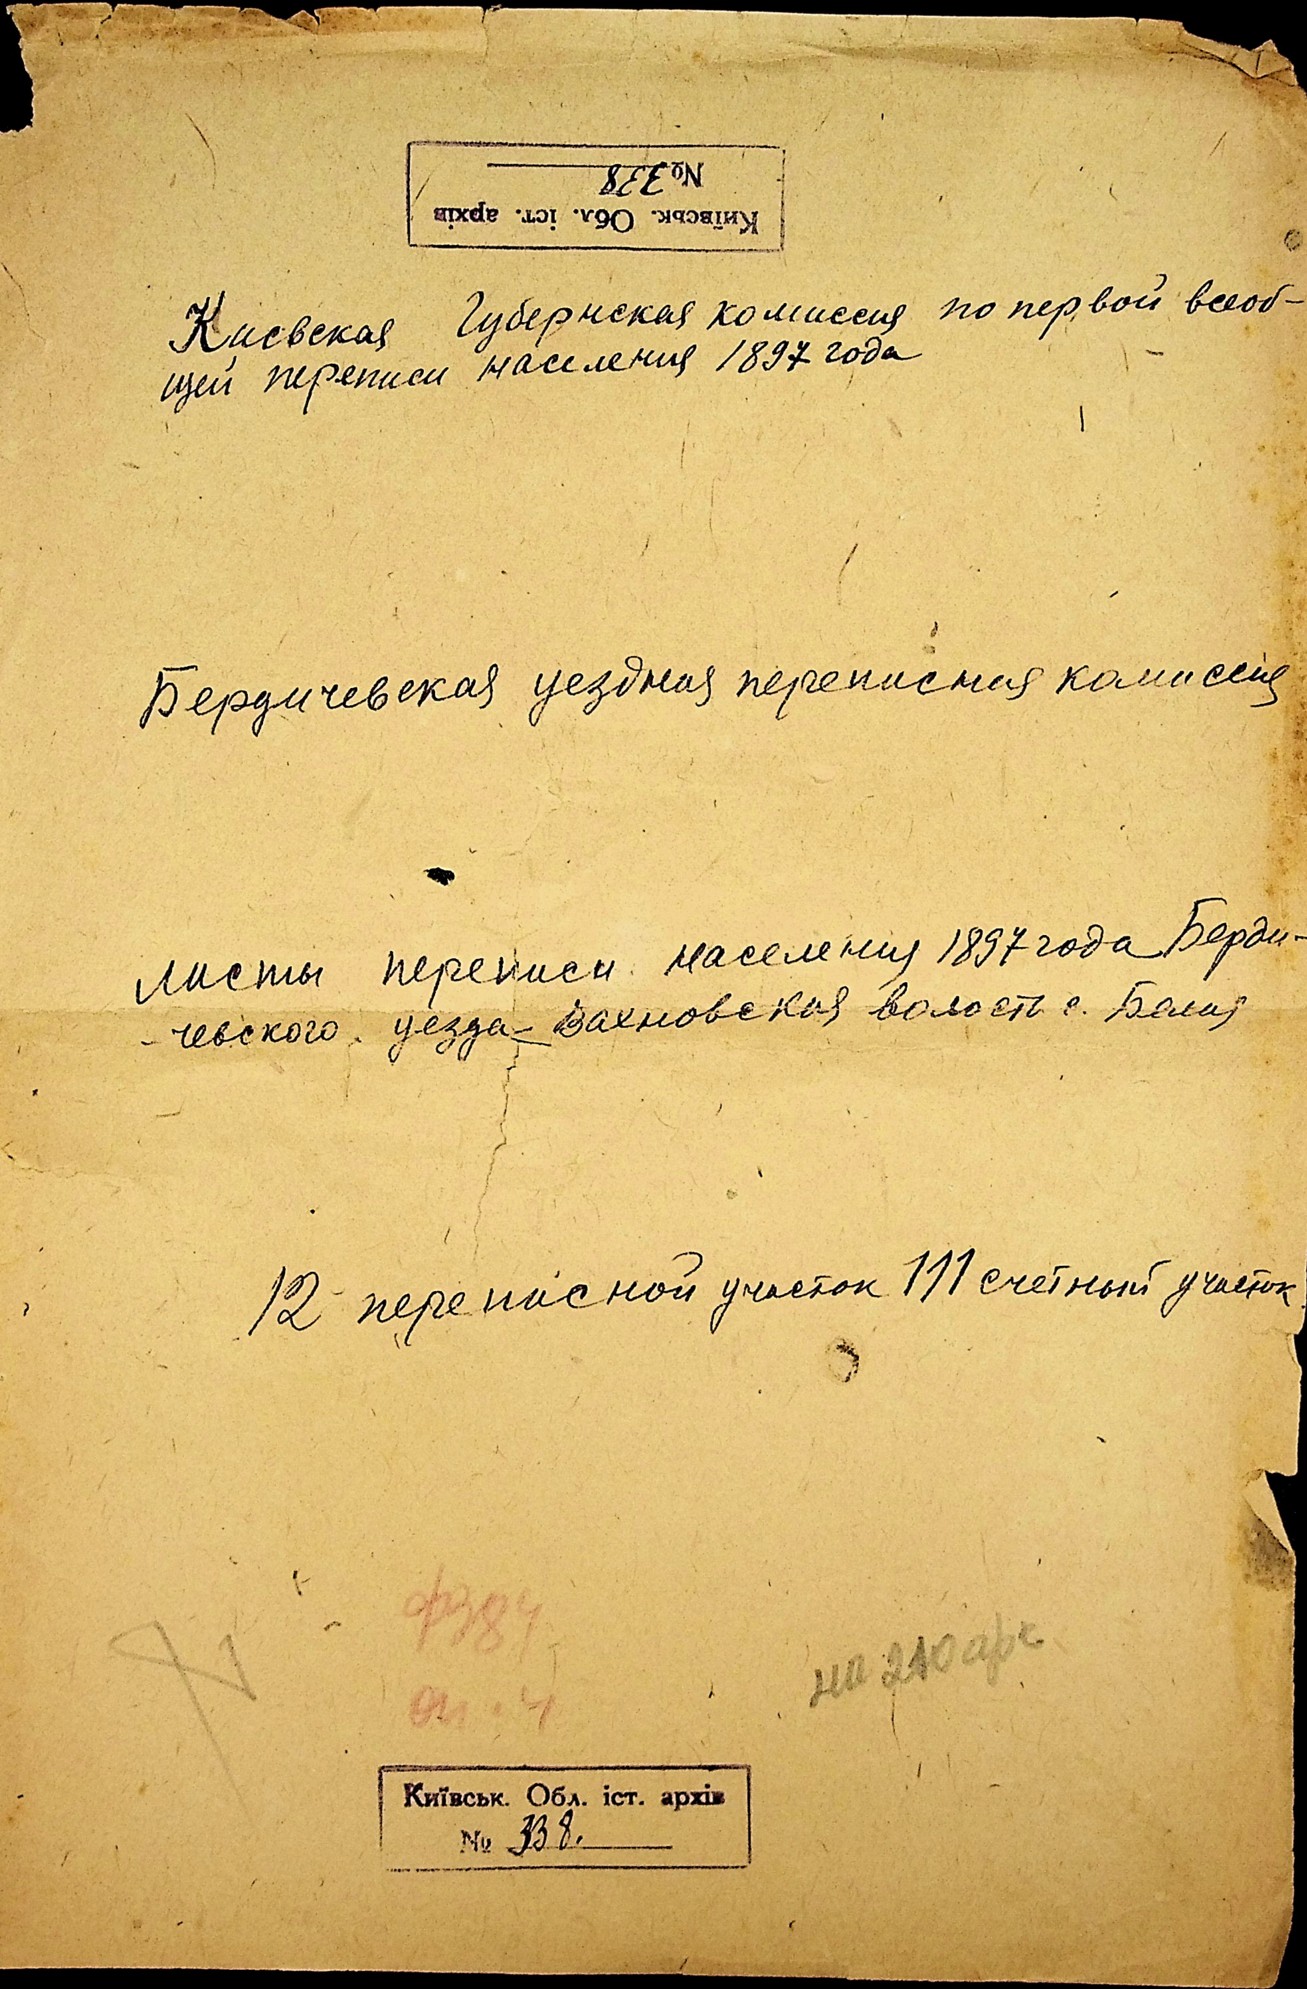 Київськ. Обл. іст. архів
№ 338
Киевская Губернская комиссия по первой всеоб-
щей переписи населения 1897 года
Бердичевская уездная переписная комиссия
Листы переписи населения 1897 года Берди-
-чевского уезда - Вахновская волость с. Белия
12 переписной участок 111 счетный участок
ф 384
оп. 4
на 210 арк
Київськ. Обл. іст. архів
№ 338.